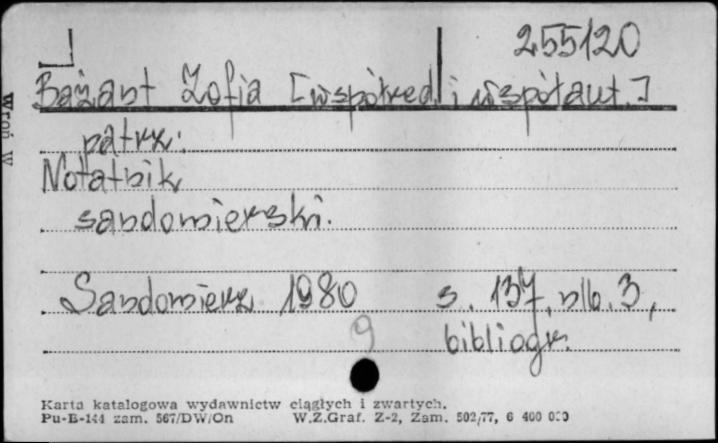 255120
Bażant Zofia [współred. i współaut.]
patrz:
Notatnik
sandomierski.
Sandomierz 1980 s. 137, nlb. 3,
9
bibliogr.
Karta katalogowa wydawnictw ciągłych i zwartych.
Pu-B-144 zam. 567/DW/On W.Z.Graf. Z-2, Zam. 502/77, 6 400 000